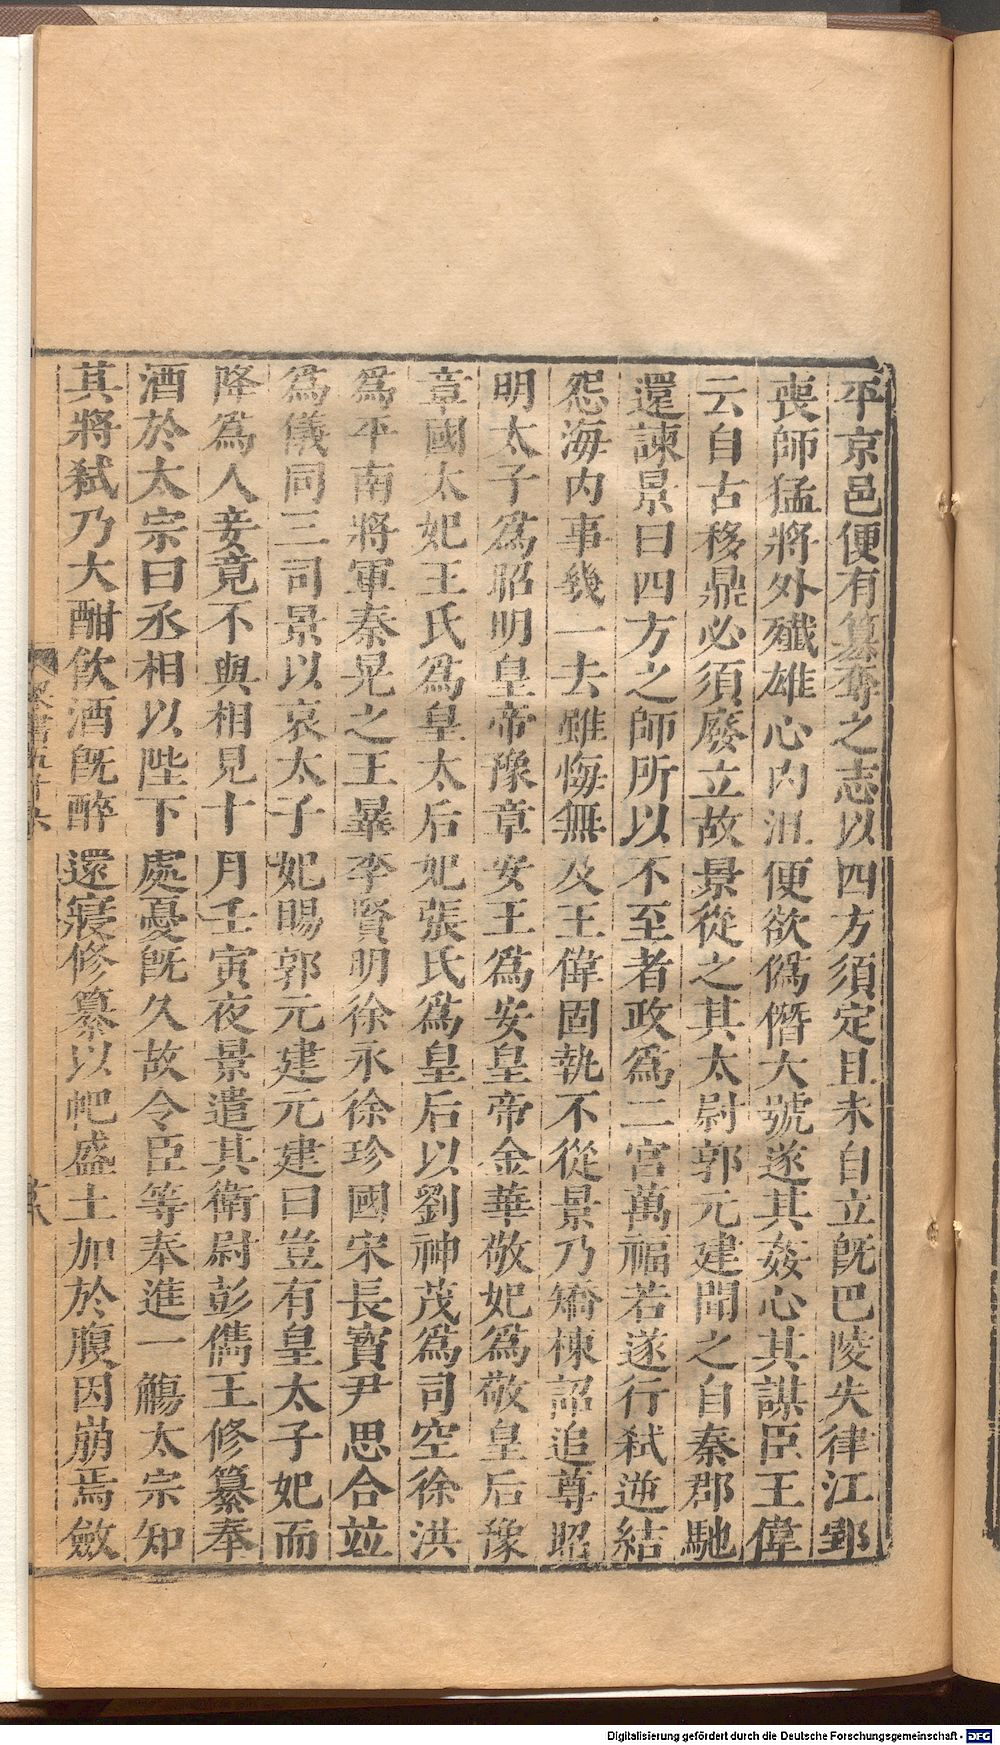 平京邑便有篡奪之志以四方須定且未自立旣巴陵失律江郢
喪師猛將外殲雄心內沮便欲僞僭大號遂其姦心其謀臣王偉
云自古移鼎必須廢立故景從之其太尉郭元建聞之自秦郡馳
還諫景曰四方之師所以不至者政爲二宮萬福若遂行弒逆結
怨海內事幾一去雖悔無及王偉固執不從景乃矯棟詔追尊昭
明太子爲昭明皇帝豫章安王爲安皇帝金華敬妃爲敬皇后豫
章國太妃王氏爲皇太后妃張氏爲皇后以劉神茂爲司空徐洪
爲平南將軍秦晃之王曅李賢明徐永徐珍國宋長寶尹思合竝
爲儀同三司景以哀太子妃賜郭元建元建曰豈有皇太子妃而
降爲人妾竟不與相見十月壬寅夜景遣其衛尉彭儁王修纂奉
酒於太宗曰丞相以陛下處憂旣久故令臣等奉進一觴太宗知
其將弒乃大酣飲酒旣醉還寢修纂以帊盛土加於腹因崩焉斂
梁書五十六
Digitalisierung gefördert durch die Deutsche Forschungsgemeinschaft - DFG